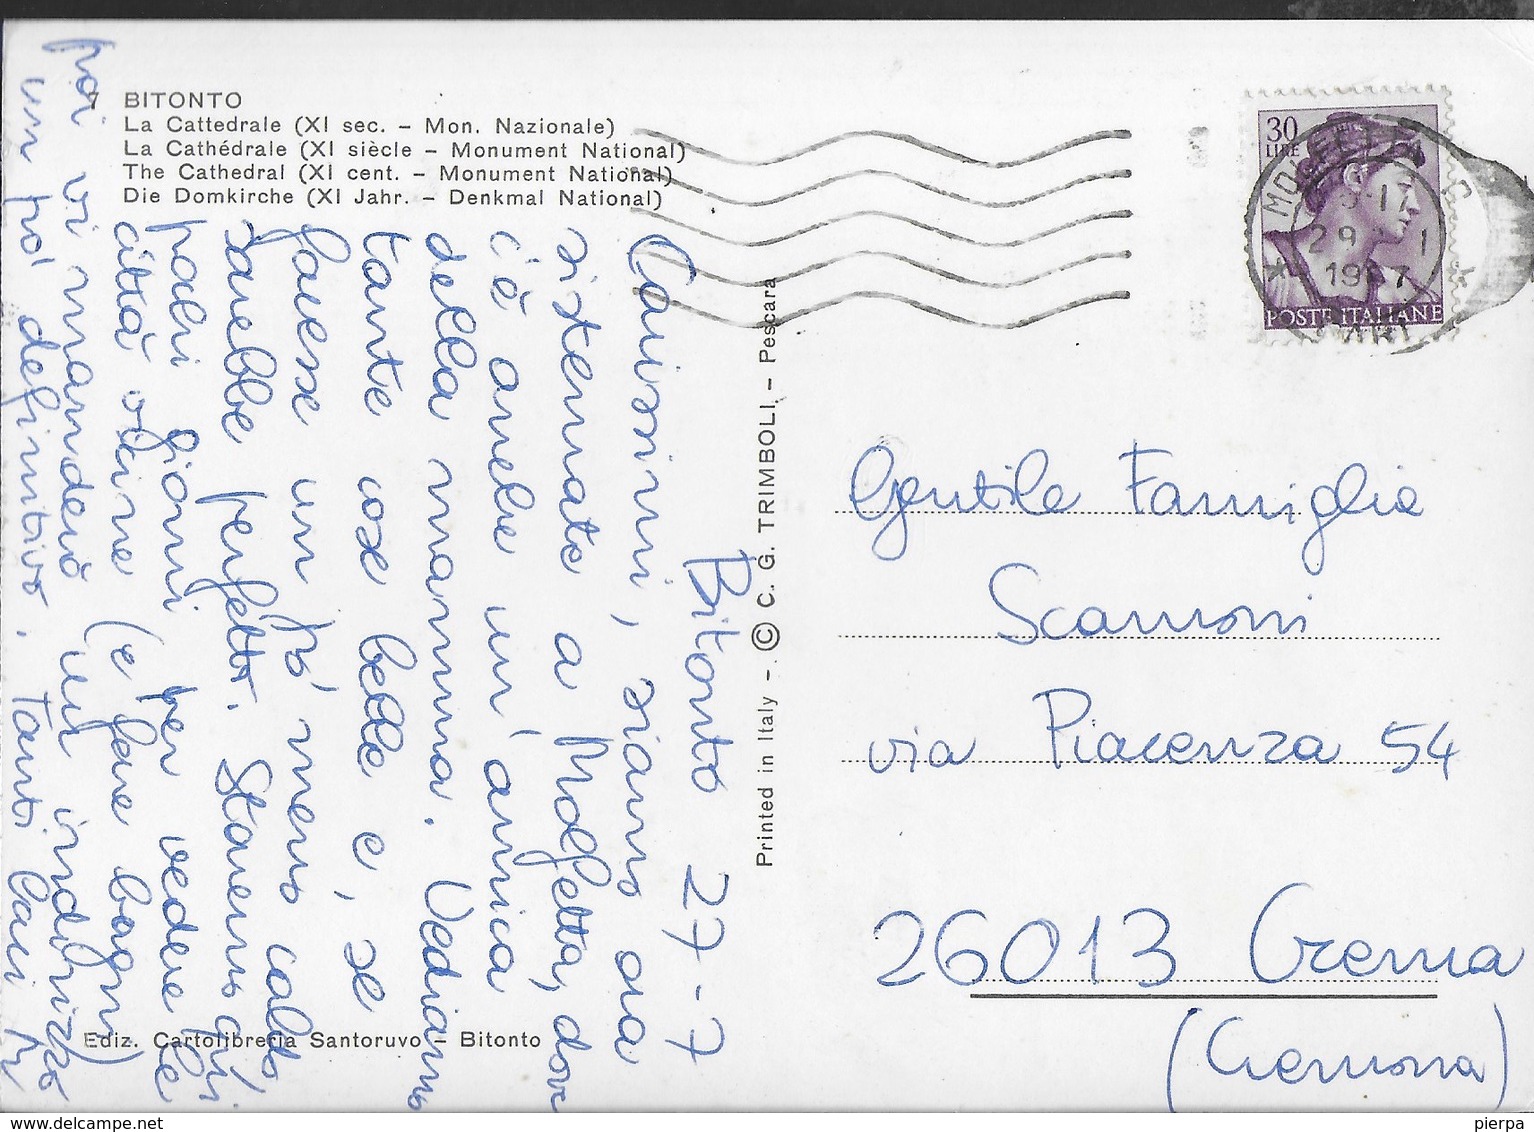 7 BITONTO
La Cattedrale (XI sec. – Mon. Nazionale)
La Cathédrale (XI siècle – Monument National)
The Cathedral (XI cent. – Monument National)
Die Domkirche (XI Jahr. – Denkmal National)
Bitonto 27-7
Carissimi, siamo ora
sistemate a Molfetta, dove
c'è anche un'amica
della mamma. Vediamo
tante cose belle e, se
facesse un po' meno caldo
sarebbe perfetto. Staremo qui
pochi giorni per vedere le
città vicine (e fare bagni)
poi vi manderò un indirizzo
un po' definitivo. Tanti cari
Ediz. Cartolibreria Santoruvo – Bitonto
Printed in Italy - © C. G. TRIMBOLI. – Pescara
30
LIRE
POSTE ITALIANE
MOLFETTA
Gentile Famiglia
Scamoni
via Piacenza 54
26013 Crema
(Cremona)
pierpa
www.delcampe.net